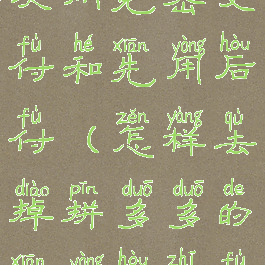 fù hé xiān yòng hòu
付和先用后
fù zěn yàng qù
付（怎样去
diào pīn duō duō de
掉拼多多的
xiān yòng hòu zhī fù